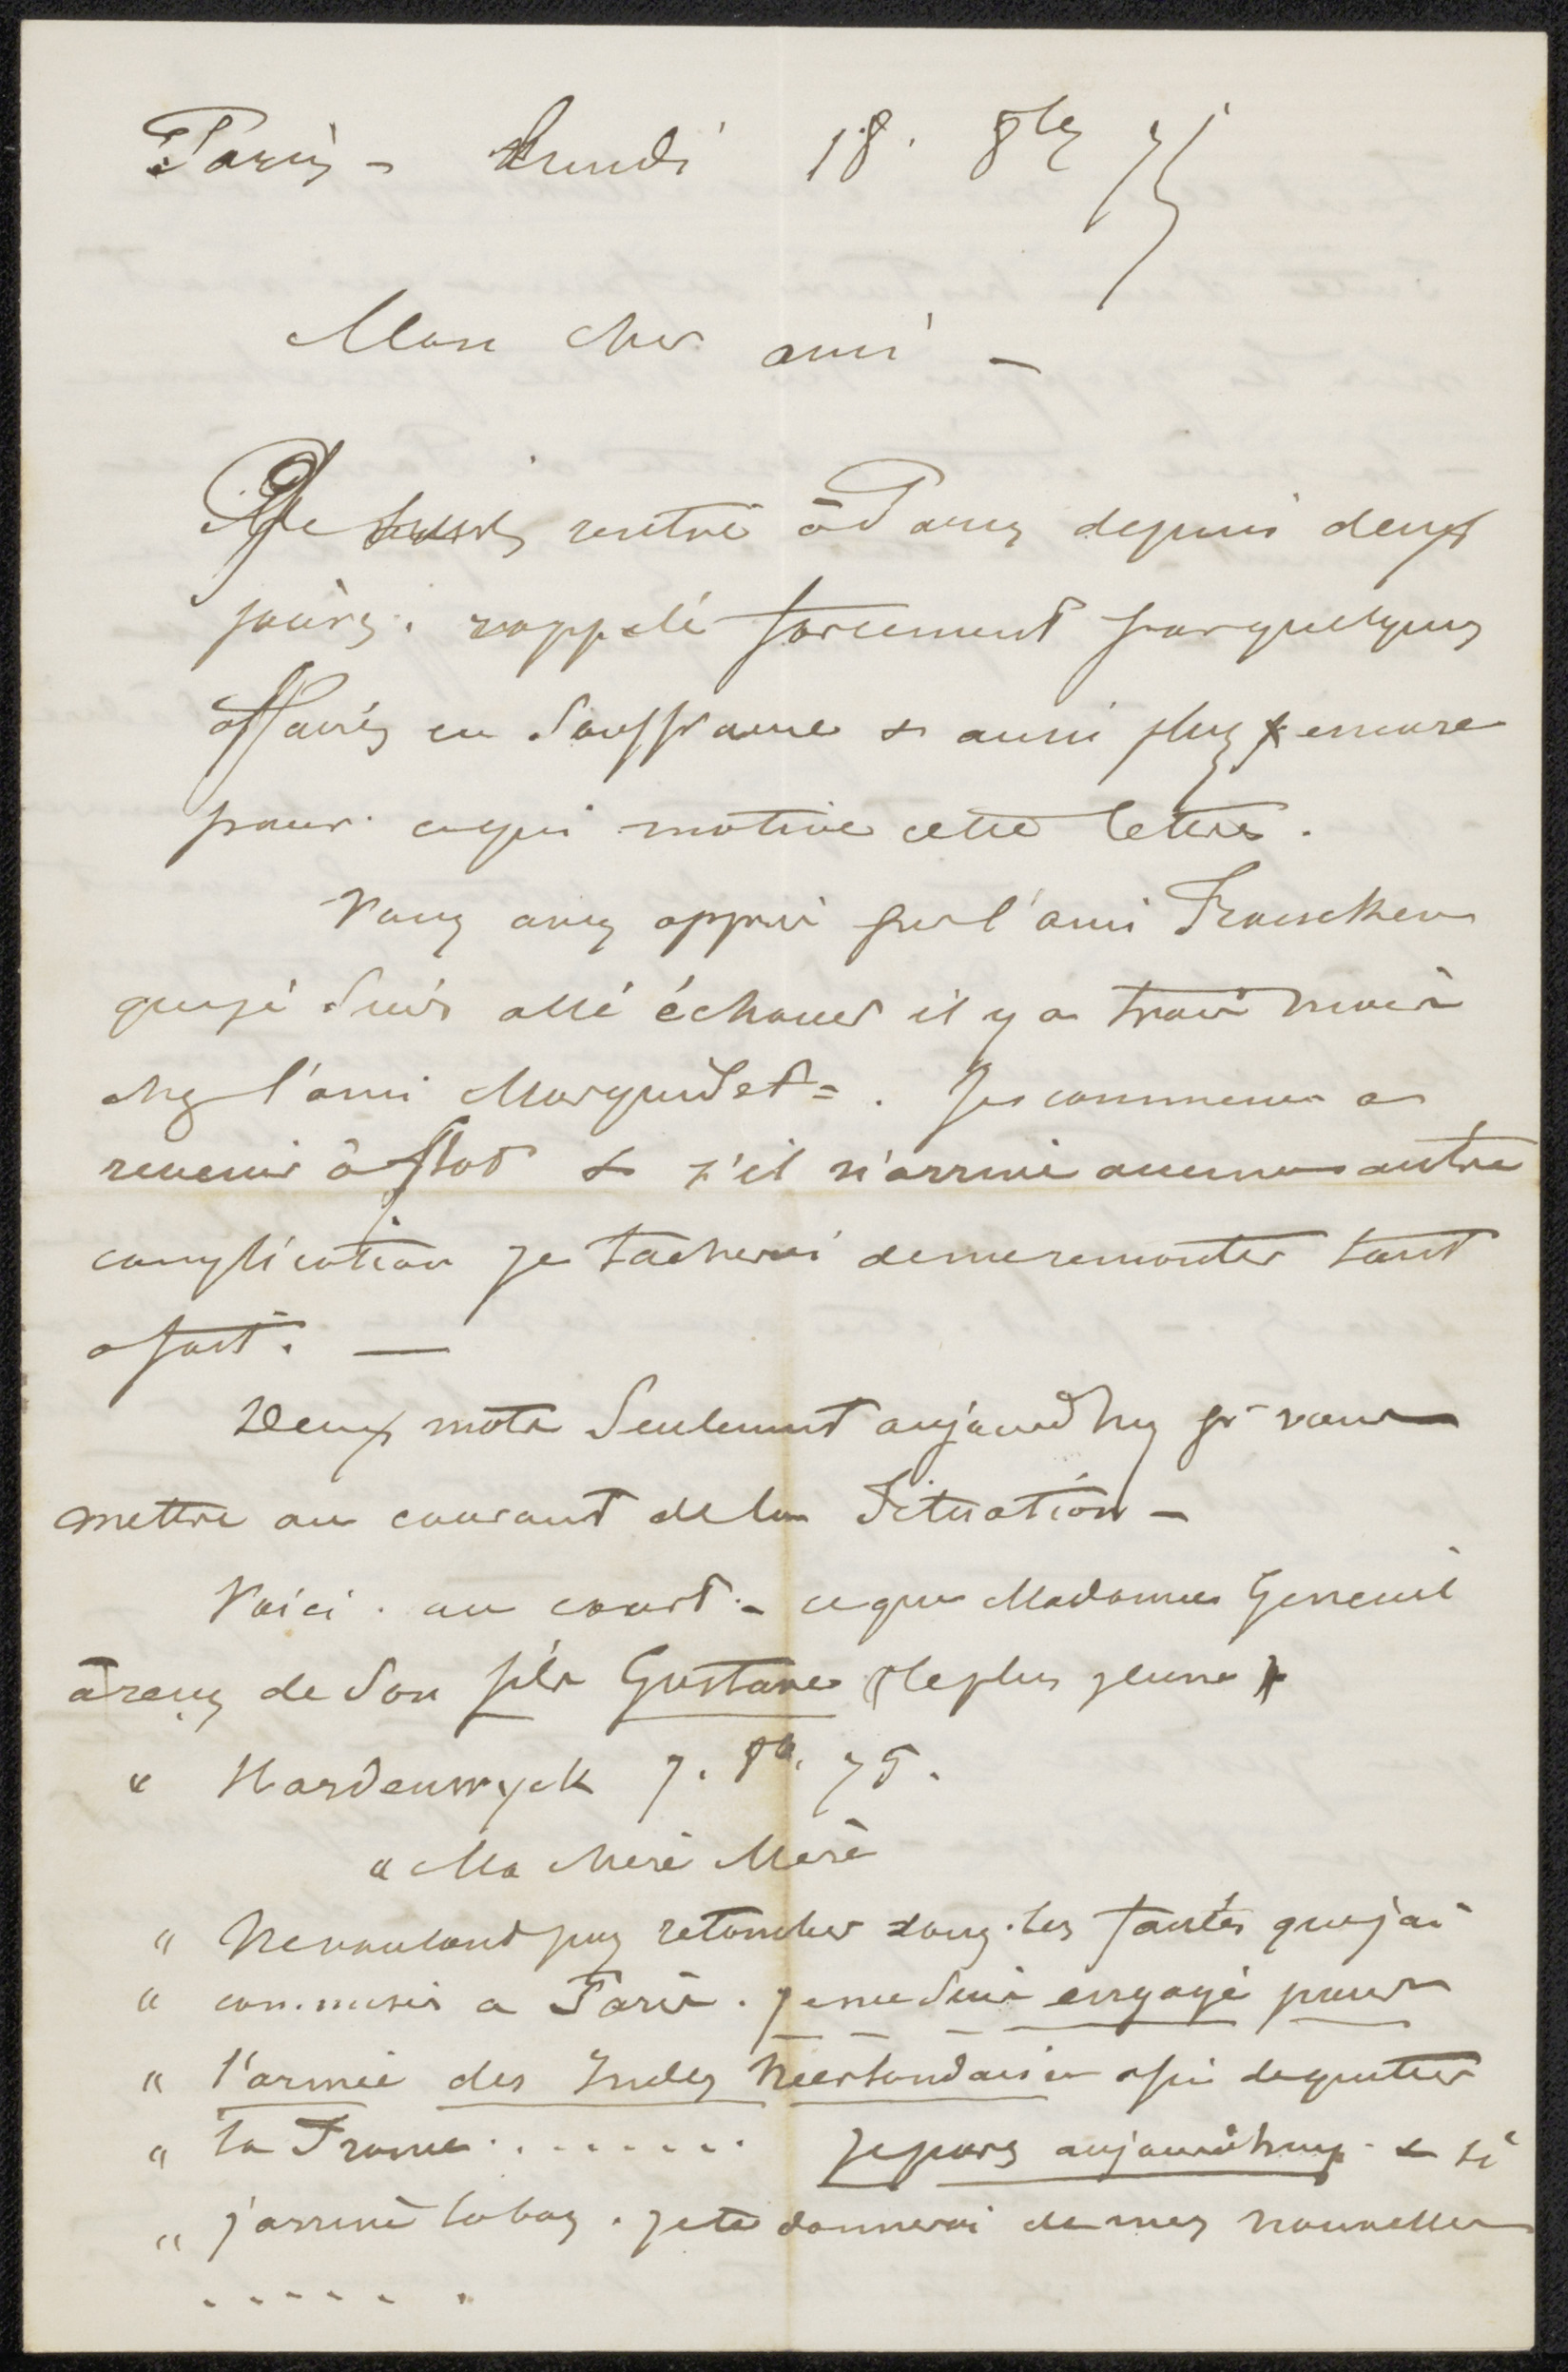 Paris - Lundi 18. 8bre 75
Mon cher ami -
Je suis rentré à Paris depuis deux
jours. rappelé forcement par quelques
affaires en Souffrance & aussi plus encore
pour ce qui motive cette lettre.
Vous avez appris par l'ami
que je suis allé échouer il y a trois mois
chez l'ami . Je commence a
revenir à flot & s'il n'arrive aucune autre
complication je tacherai de me remonter tout
a fait. —
Deux mots Seulement aujourd'huy pr vous
mettre au courant de la Situation -
Voici. au court - ce que Madame
a reçu de Son fils Gustave (le plus jeune)
" Harderwyck 7. 8b. 75.
" Ma chère Mère
" Ne voulant pas retomber dans les fautes que j'ai
" commises a Paris. je me suis engagé pour
" l'armée des Indes Neerlandaise afin de quitter
" la France. . . . . . . . Je pars aujourd'huy - & si
" j'arrive la bas. je te donnerai de mes nouvelles
. . . . . .